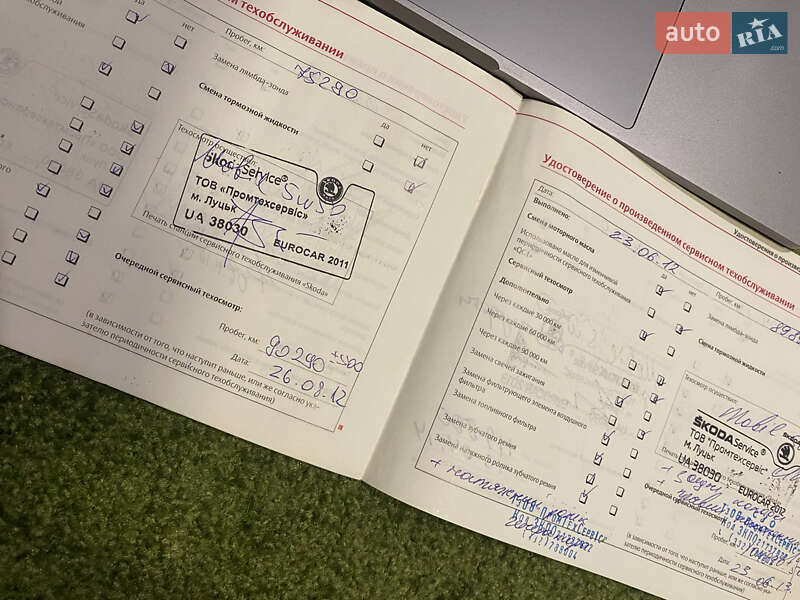 auto RIA .com
ом техобслуживании
техобслуживания
да
нет
Пробег, км:
75290
Замена лямбда-зонда
Смена тормозной жидкости
да
нет
Техосмотр осуществил:
ŠkodaService®
ТОВ «Промтехсервіс»
м. Луцьк
UA 38030
EUROCAR 2011
Печать станции сервисного техобслуживания «Skoda»
Очередной сервисный техосмотр:
Пробег, км:
90290 +500
Дата:
26.08.12
(в зависимости от того, что наступит раньше, или же согласно ука-
зателю периодичности сервисного техобслуживания)
Удостоверение о произведенном сервисном техобслуживании
Удостоверение о произве
Дата:
23.06.12
Выполнено:
Смена моторного масла
Использовано масло для изменчивой
периодичности сервисного техобслуживания
«QG1»
Сервисный техосмотр
Дополнительно
Через каждые 30 000 км
Через каждые 60 000 км
Через каждые 90 000 км
Замена свечей зажигания
Замена фильтрующего элемента воздушного
фильтра
Замена топливного фильтра
Замена зубчатого ремня
Замена натяжного ролика зубчатого ремня
да
нет
Пробег, км:
Замена лямбда-зонда
Смена тормозной жидкости
Техосмотр осуществил:
Mobil
ŠKODAService®
ТОВ "Промтехсервіс"
м. Луцьк
UA 38030
EUROCAR 2012
Очередной сервисный техосмотр
Дата:
23.06.13
(в зависимости от того, что наступит раньше, или же согласно ука-
зателю периодичности сервисного техобслуживания)